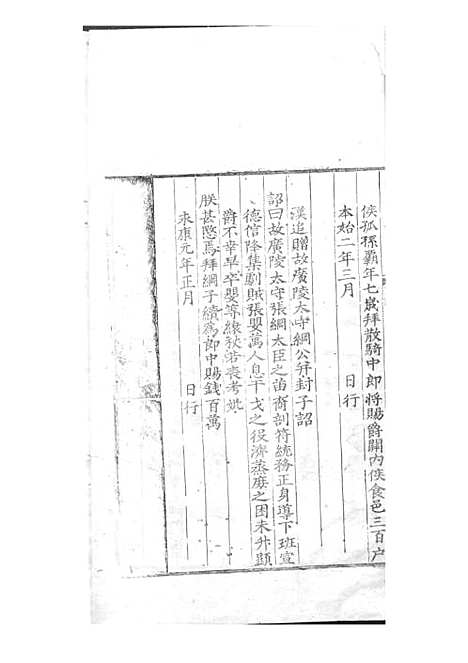 侯孤孫霸年七歲拜散騎中郎将賜爵關内侯食邑三百户
本始二年三月　日行
漢追贈故廣陵太守綱公并封子詔
詔曰故廣陵太守張綱大臣之苗裔剖符統務正身導下班宣
德信降集劇賊張嬰萬人息干戈之役濟蒸庶之困未升顯
爵不幸早卒嬰等縗杖若喪考妣
朕甚愍焉拜綱子續爲郎中賜錢百萬
永康元年正月　日行